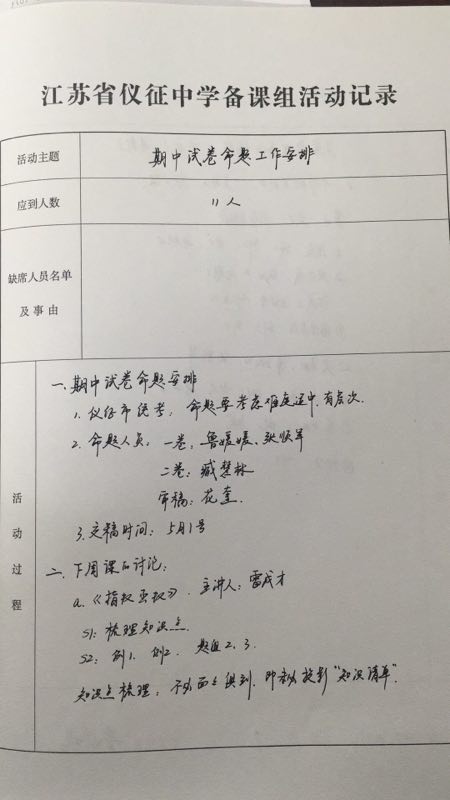 江苏省仪征中学备课组活动记录
活动主题 期中试卷命题工作安排
应到人数 11人
缺席人员名单
及事由
活动过程
一.期中试卷命题安排
1.仪征市统考,命题要考虑难度适中.有层次.
2.命题人员:一卷,鲁媛媛、张顺军
二卷:臧慧林
审稿:花奎.
3.交稿时间:5月1号
二.下周课的讨论:
a.《指数函数》.主讲人:雷成才
S1:梳理知识点.
S2:例1.例2.题组2、3.
知识点梳理,不必面面俱到.即投影“知识清单”.